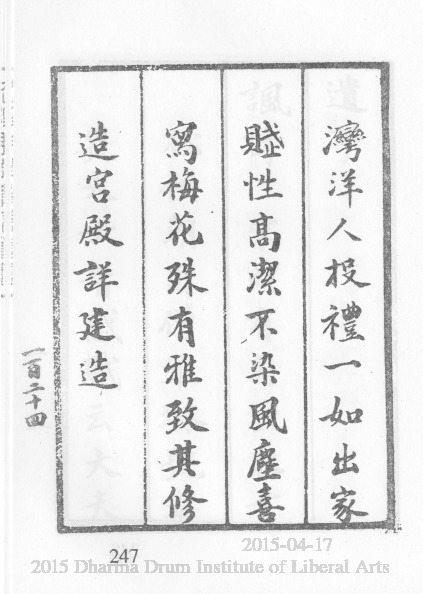 灣洋人投禮一如出家
賦性高潔不染風塵喜
寫梅花殊有雅致其修
造宮殿詳建造
一百二十四
247
2015-04-17
2015 Dharma Drum Institute of Liberal Arts